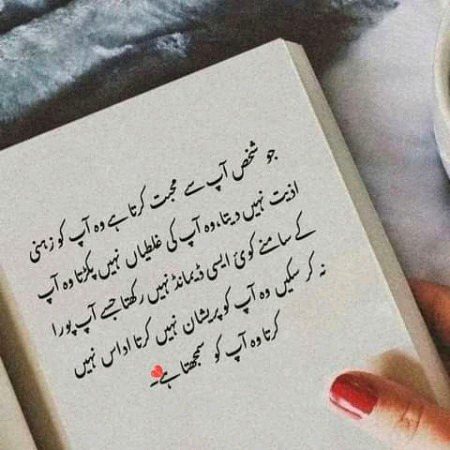 جو شخص آپ سے محبت کرتا ہے وہ آپ کو زہنی
اذیت نہیں دیتا،وہ آپ کی غلطیاں نہیں پکڑتا وہ آپ
کے سامنے کوئ ایسی ڈیمانڈ نہیں رکھتا جسے آپ پورا
نہ کر سکیں وہ آپ کو پریشان نہیں کرتا اداس نہیں
کرتا وہ آپ کو سمجھتا ہے۔